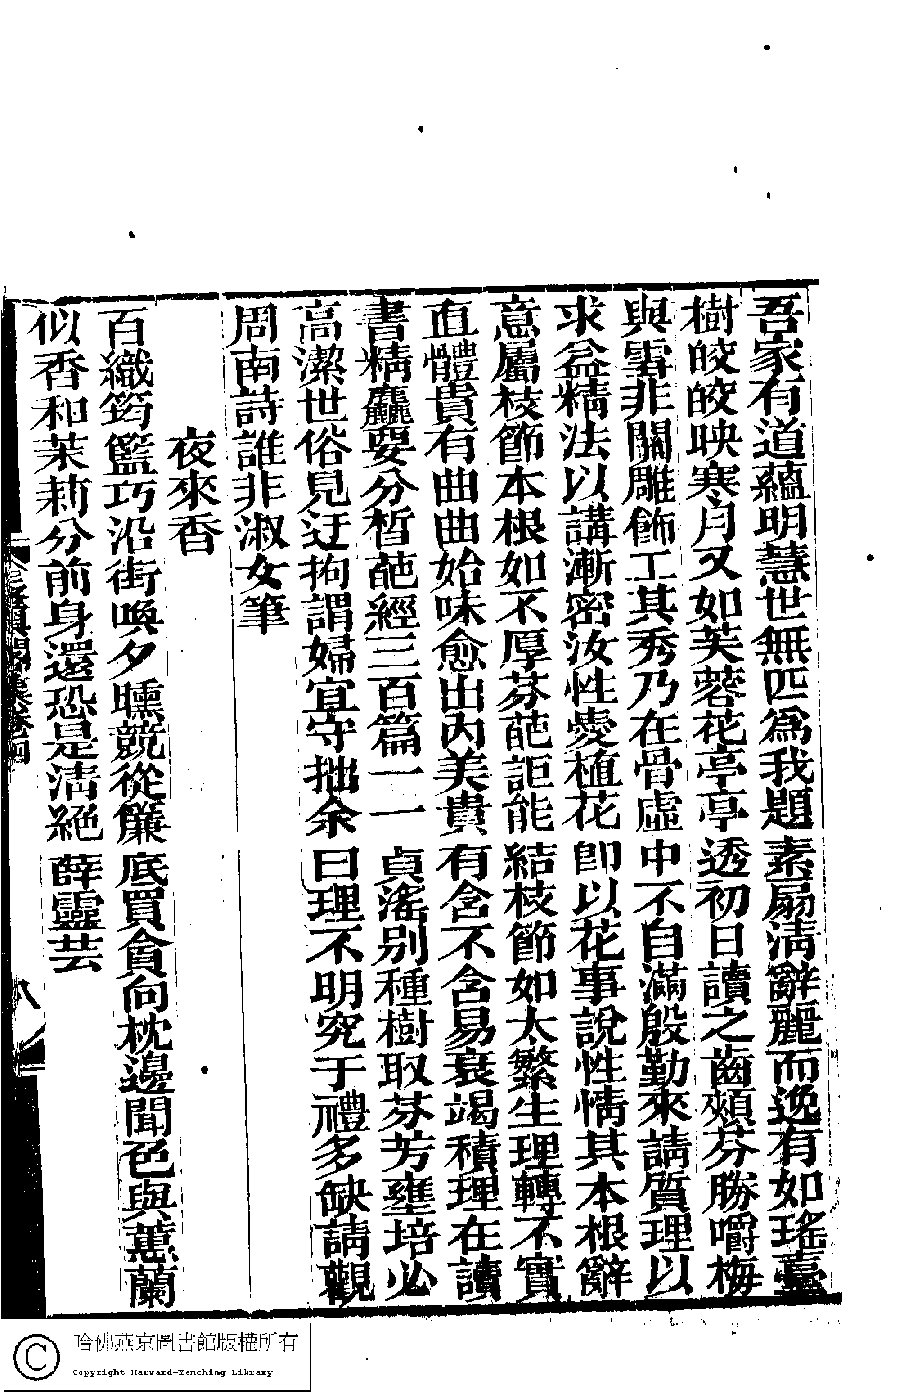 吾家有道蘊明慧世無匹爲我題素扇淸辭麗而逸有如瑤臺
樹皎皎映寒月又如芙蓉花亭亭透初日讀之齒頰芬勝嚼梅
與雪非關雕飾工其秀乃在骨虛中不自滿殷勤來請質理以
求益精法以講漸密汝性愛植花卽以花事說性情其本根辭
意屬枝節本根如不厚芬葩詎能結枝節如太繁生理轉不實
直體貴有曲曲始味愈出內美貴有含不含易衰竭積理在讀
書精麤要分晳葩經三百篇一一貞淫別種樹取芬芳壅培必
高潔世俗見迂拘謂婦宜守拙余曰理不明究于禮多缺請觀
周南詩誰非淑女筆
夜來香
百織筠籃巧沿街喚夕曛競從簾底買貪向枕邊聞色與蕙蘭
似香和茉莉分前身還恐是淸絕薛靈芸
集卷四
八
哈佛燕京圖書館版權所有
Copyright Harvard-Yenching Library